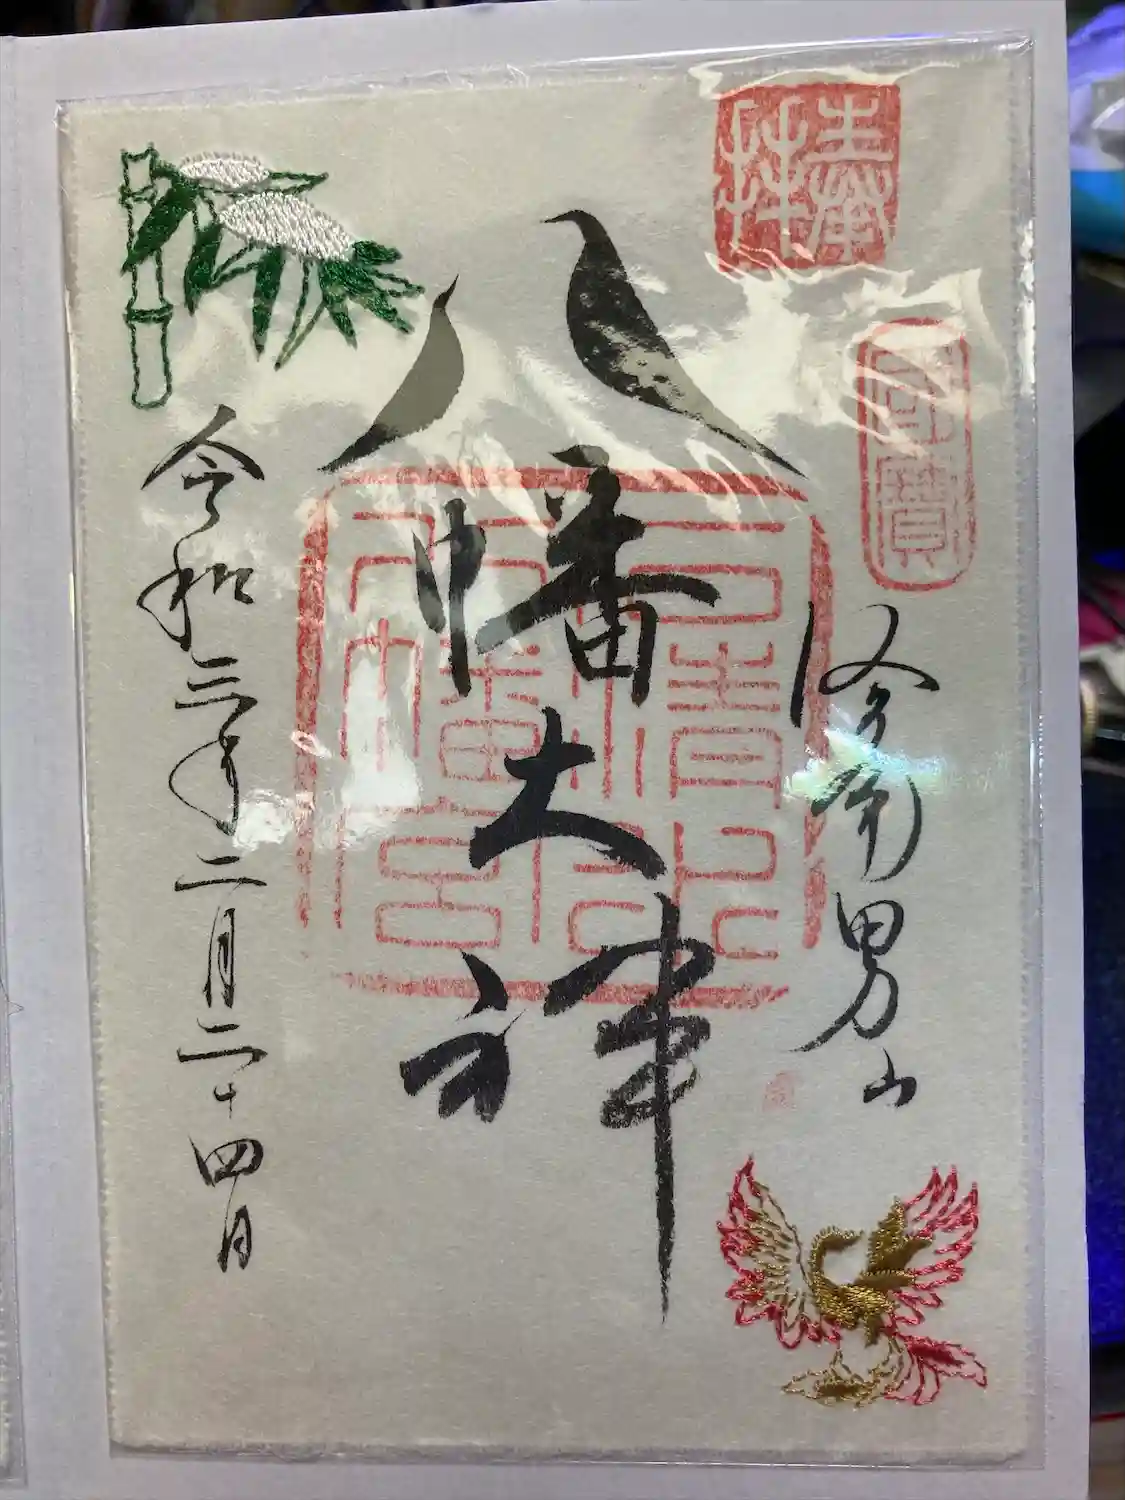 奉拝
国寶
洛南男山
八幡大神
石清水八幡宮
令和三年二月二十四日